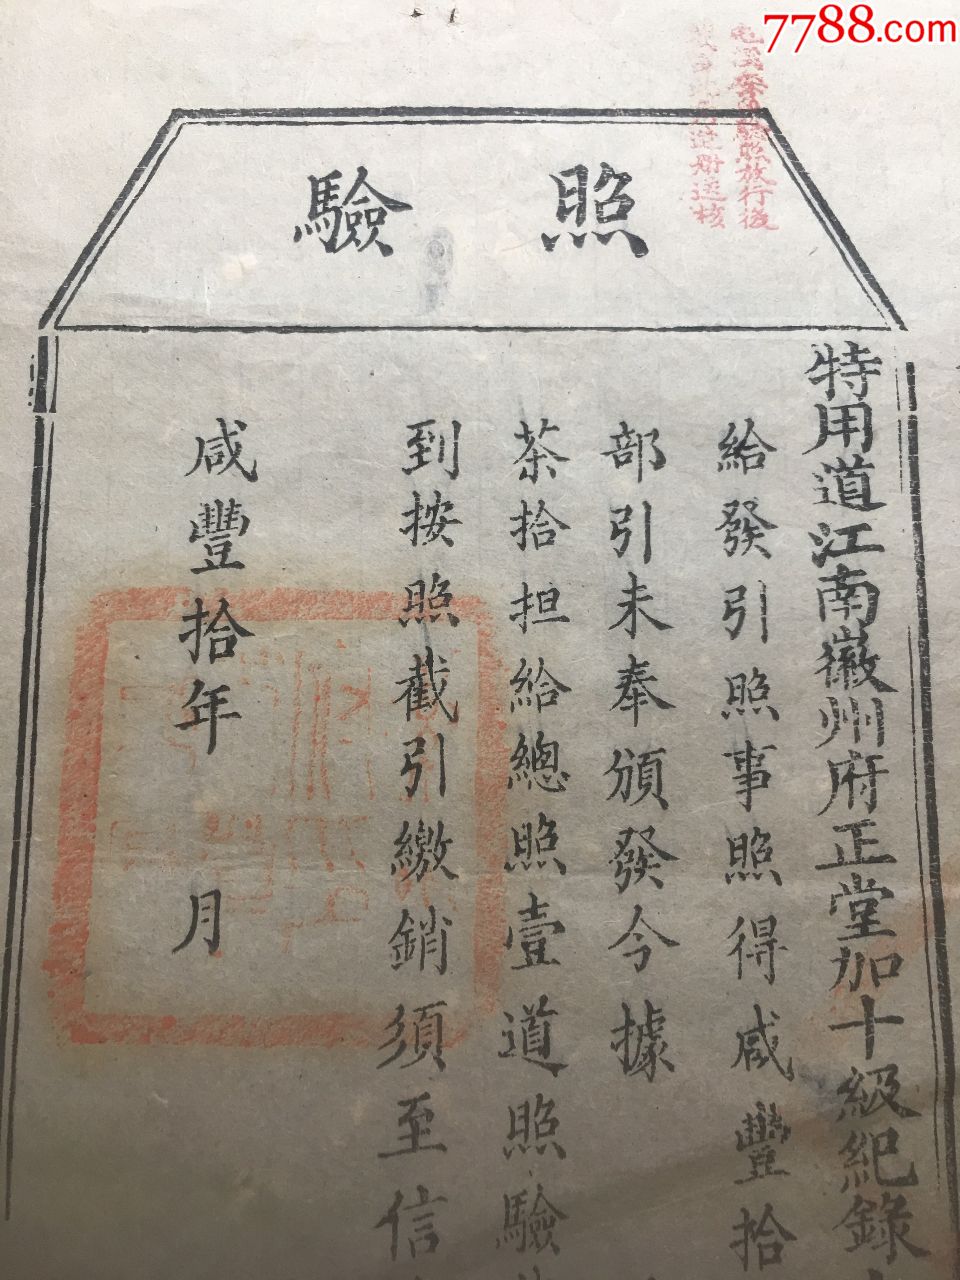 7788.com
照驗
特用道江南徽州府正堂加十級紀錄
給發引照事照得咸豐拾
部引未奉頒發今據
茶拾担給總照壹道照驗
到按照截引繳銷須至信
咸豐拾年 月
驗照放行後
造册送核